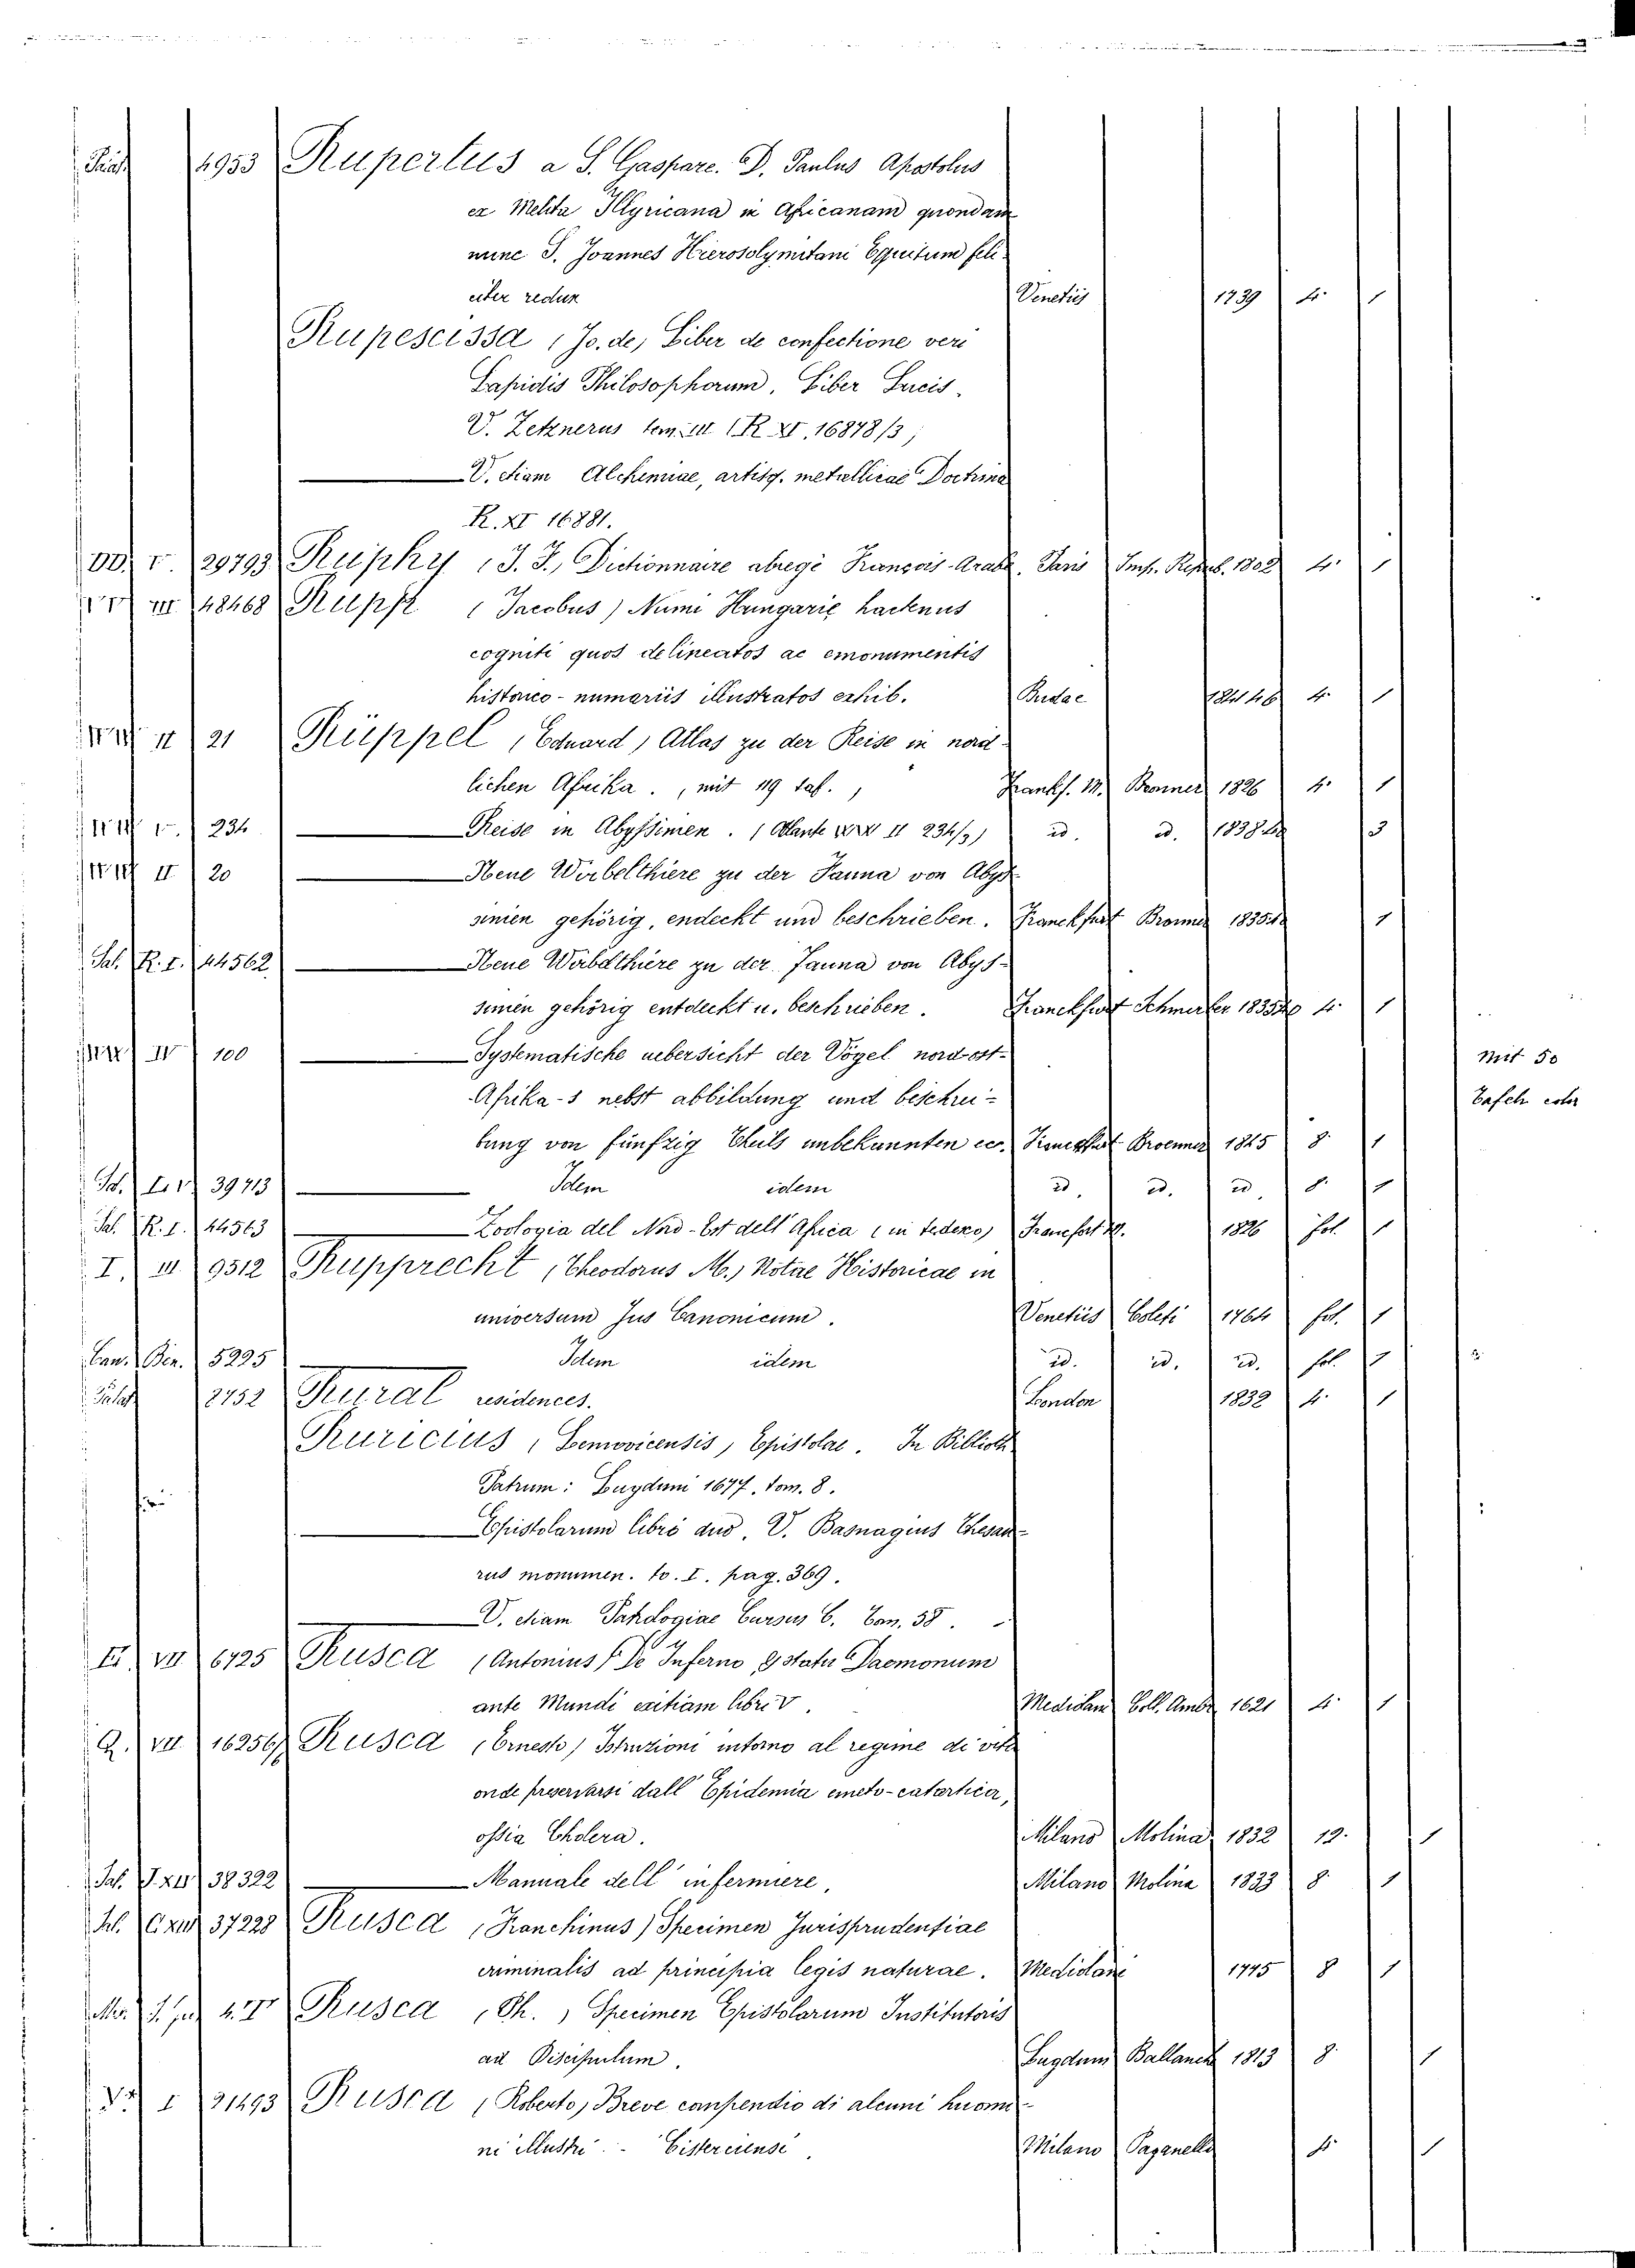 4953 Rupertus a S. Gaspare. D. Paulus Apostolus
ex Melita Illyricana in Africanam quondam
nunc S. Joannes Hierosolymitani Equitum feli
citer redux Venetiis 1739 4. 1
Rupescissa (Jo. de) Liber de confectione veri
Lapidis Philosophorum, Liber Lucis.
V. Zetznerus tom. III (R XI. 16878/3)
V. etiam Alchemiae, artisq. metallicae Doctrina
R. XI 16881.
DD. V. 29793 Ruphy (J. J.) Dictionnaire abregé François-Arabe. Paris Imp. Repub. 1802 4. 1
III 48468 Rupp (Jacobus) Numi Hungarię hactenus
cogniti quos delineatos ac emonumentis
historico-numariis illustratos exhib. Budae 4. 1
II 21 Rüppel (Eduard) Atlas zu der Reise in nord-
lichen Afrika., mit 119 taf., Frankf. M. Bronner 1826 4. 1
V. 234 Reise in Abyssinien. II 234/2) id. id. 1838 3
II 20 Neue Wirbelthiere zu der Fauna von Abys-
sinien gehörig, endeckt und beschrieben. Franckfurt Bronner 1835 1
Sal. R. I. 44562 Neue Wirbelthiere zu der Fauna von Abys-
sinien gehörig entdeckt u. beschrieben. Franckfurt Schmerber 1835 4. 1
IV 100 Systematische uebersicht der Vögel nord-ost- Mit 50
Afrika-s nebst abbildung und beschrei- Tafeln color
bung von fünfzig theils unbekannten ecc. Broenner 1845 8. 1
39713 Idem idem id. id. id. 8. 1
Sal. R. I. 44563 Zoologia del Nord-Est dell'Africa (in tedesco) Francfort M. 1826 fol. 1
I. III 9512 Rupprecht (Theodorus M.) Notae Historicae in
universum Jus Canonicum. Venetiis Coleti 1764 fol. 1
5295 Idem idem id. id. id. fol. 1
2752 Rural residences. London 1832 4. 1
Ruricius (Lemovicensis) Epistolae. In Biblioth
Patrum: Lugduni 1677. tom. 8.
Epistolarum libri duo. V. Basnagius Thesau-
rus monumen. to. I. pag. 369.
V. etiam Patrologiae Cursus C. Tom. 58.
VII 6725 Rusca (Antonius) De Inferno, & statu Daemonum
ante Mundi exitiam libri V. Mediolani Coll. Ambr. 1621 4. 1
Q. VII 16256 Rusca (Ernesto) Istruzioni intorno al regime di vita
onde preservarsi dall'Epidemia emeto-catartica,
ossia Cholera. Milano Molina 1832 12. 1
Sal. 38322 Manuale dell'infermiere. Milano Molina 1833 8. 1
37228 Rusca (Franchinus) Specimen Jurisprudentiae
criminalis ad principia legis naturae. Mediolani 1775 8 1
Rusca (Ph.) Specimen Epistolarum Institutoris
ad Discipulum. Lugduni Ballanch 1813 8. 1
I 21493 Rusca (Roberto) Breve compendio di alcuni huomi-
ni illustri.- Cisterciensi. Milano Paganello 4. 1